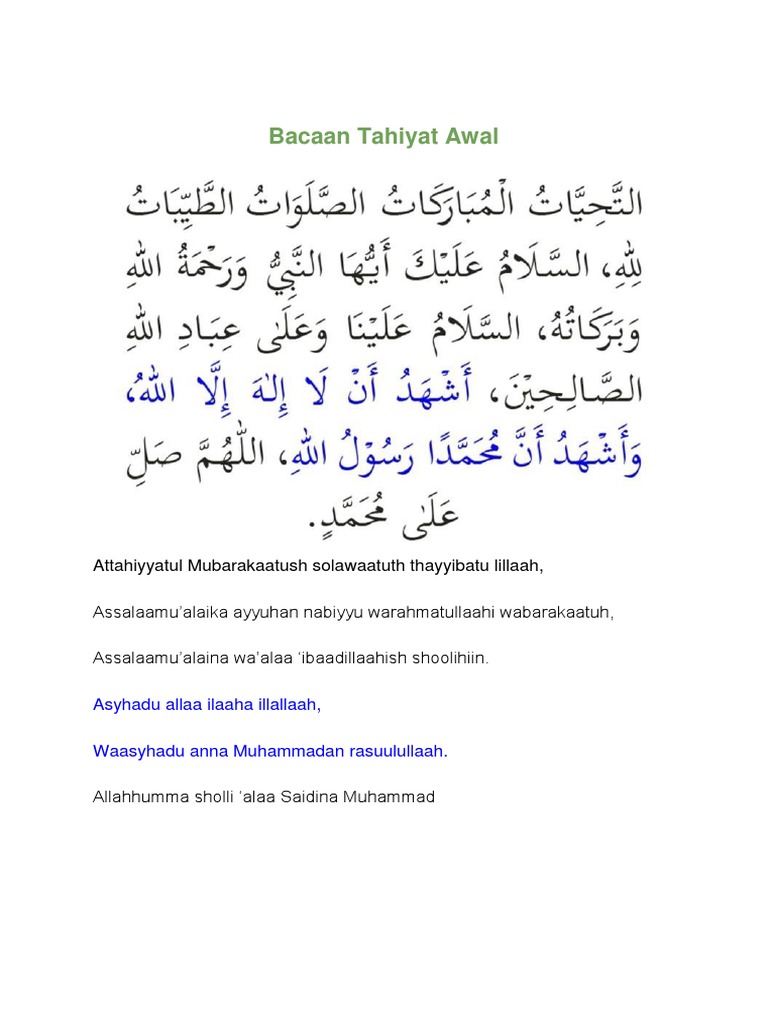 Bacaan Tahiyat Awal
التَّحِيَّاتُ الْمُبَارَكَاتُ الصَّلَوَاتُ الطَّيِّبَاتُ
لِلهِ، السَّلَامُ عَلَيْكَ أَيُّهَا النَّبِيُّ وَرَحْمَةُ اللهِ
وَبَرَكَاتُهُ، السَّلَامُ عَلَيْنَا وَعَلَى عِبَادِ اللهِ
الصَّالِحِيْنَ، أَشْهَدُ أَنْ لَا إِلٰهَ إِلَّا اللهُ،
وَأَشْهَدُ أَنَّ مُحَمَّدًا رَسُوْلُ اللهِ، اللّٰهُمَّ صَلِّ
عَلَى مُحَمَّدٍ.
Attahiyyatul Mubarakaatush solawaatuth thayyibatu lillaah,
Assalaamu’alaika ayyuhan nabiyyu warahmatullaahi wabarakaatuh,
Assalaamu’alaina wa’alaa ‘ibaadillaahish shoolihiin.
Asyhadu allaa ilaaha illallaah,
Waasyhadu anna Muhammadan rasuulullaah.
Allahhumma sholli ‘alaa Saidina Muhammad